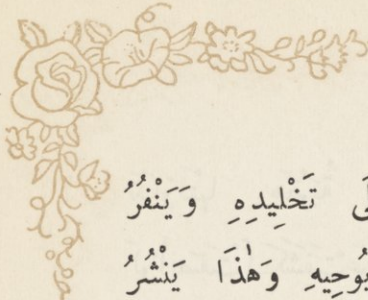 تَخْلِيدِهِ وَيَنْفِرُ
يُوحِيهِ وَهٰذَا يَنْشُرُ